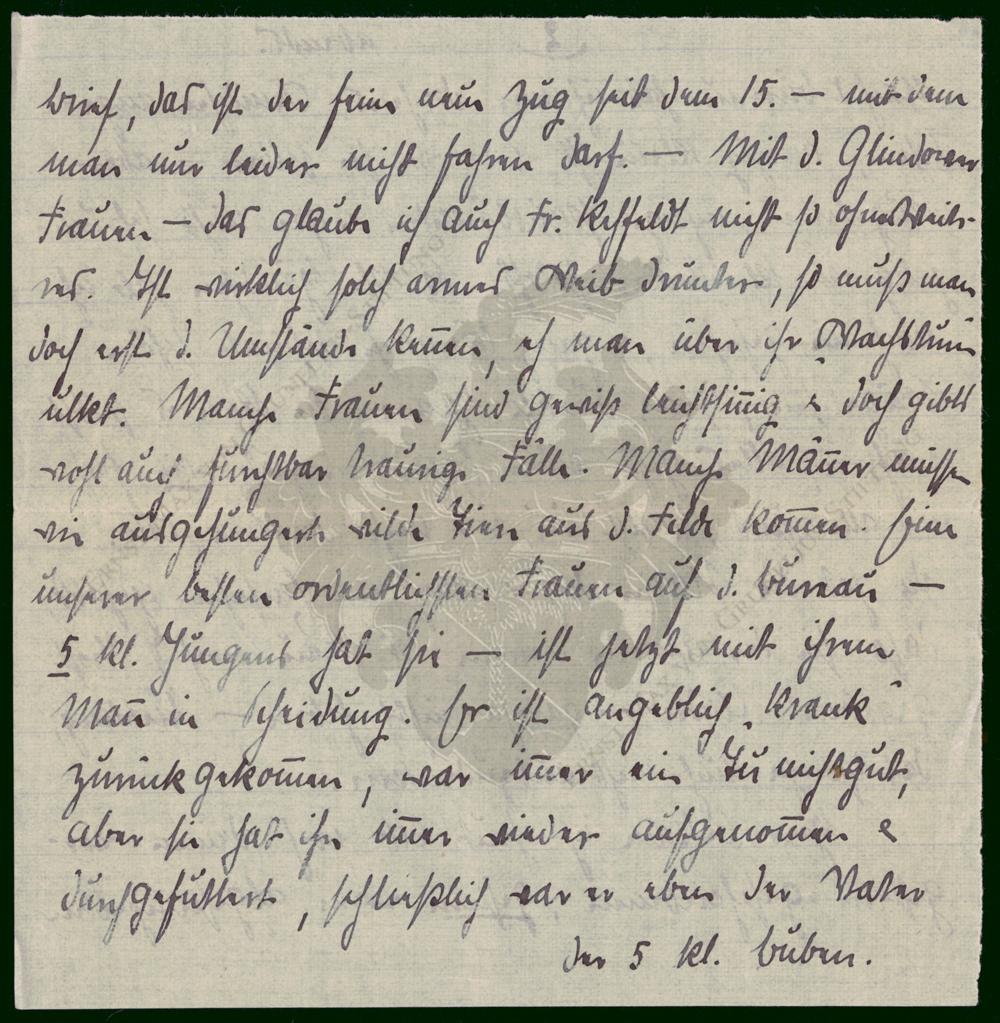 brief, das ist der feine neue Zug seit dem 15. — mit dem
man nur leider nicht fahren darf. — Mit d. Glindower
Frauen — das glaube ich auch Fr. Rehfeldt nicht so ohneweite-
res. Ist wirklich solch armes Weib drunter, so muß man
doch erst d. Umstände keñen, eh man über ihr Wachstum
ulkt. Manche Frauen sind gewiß leichtsiñig & doch gibts
wohl auch furchtbar traurige Fälle. Manche Mäñer müssen
wie ausgehungerte wilde Tiere aus d. Felde kom̄en. Eine
unserer besten ordentlichsten Frauen auf d. Bureau —
5 kl. Jungens hat sie — ist jetzt mit ihrem
Mañ in Scheidung. Er ist angeblich „krank“
zurückgekom̄en, war im̄er ein Tunichtgut,
aber sie hat ihn im̄er wieder aufgenom̄en &
durchgefüttert, schließlich war er eben der Vater
der 5 kl. Buben.